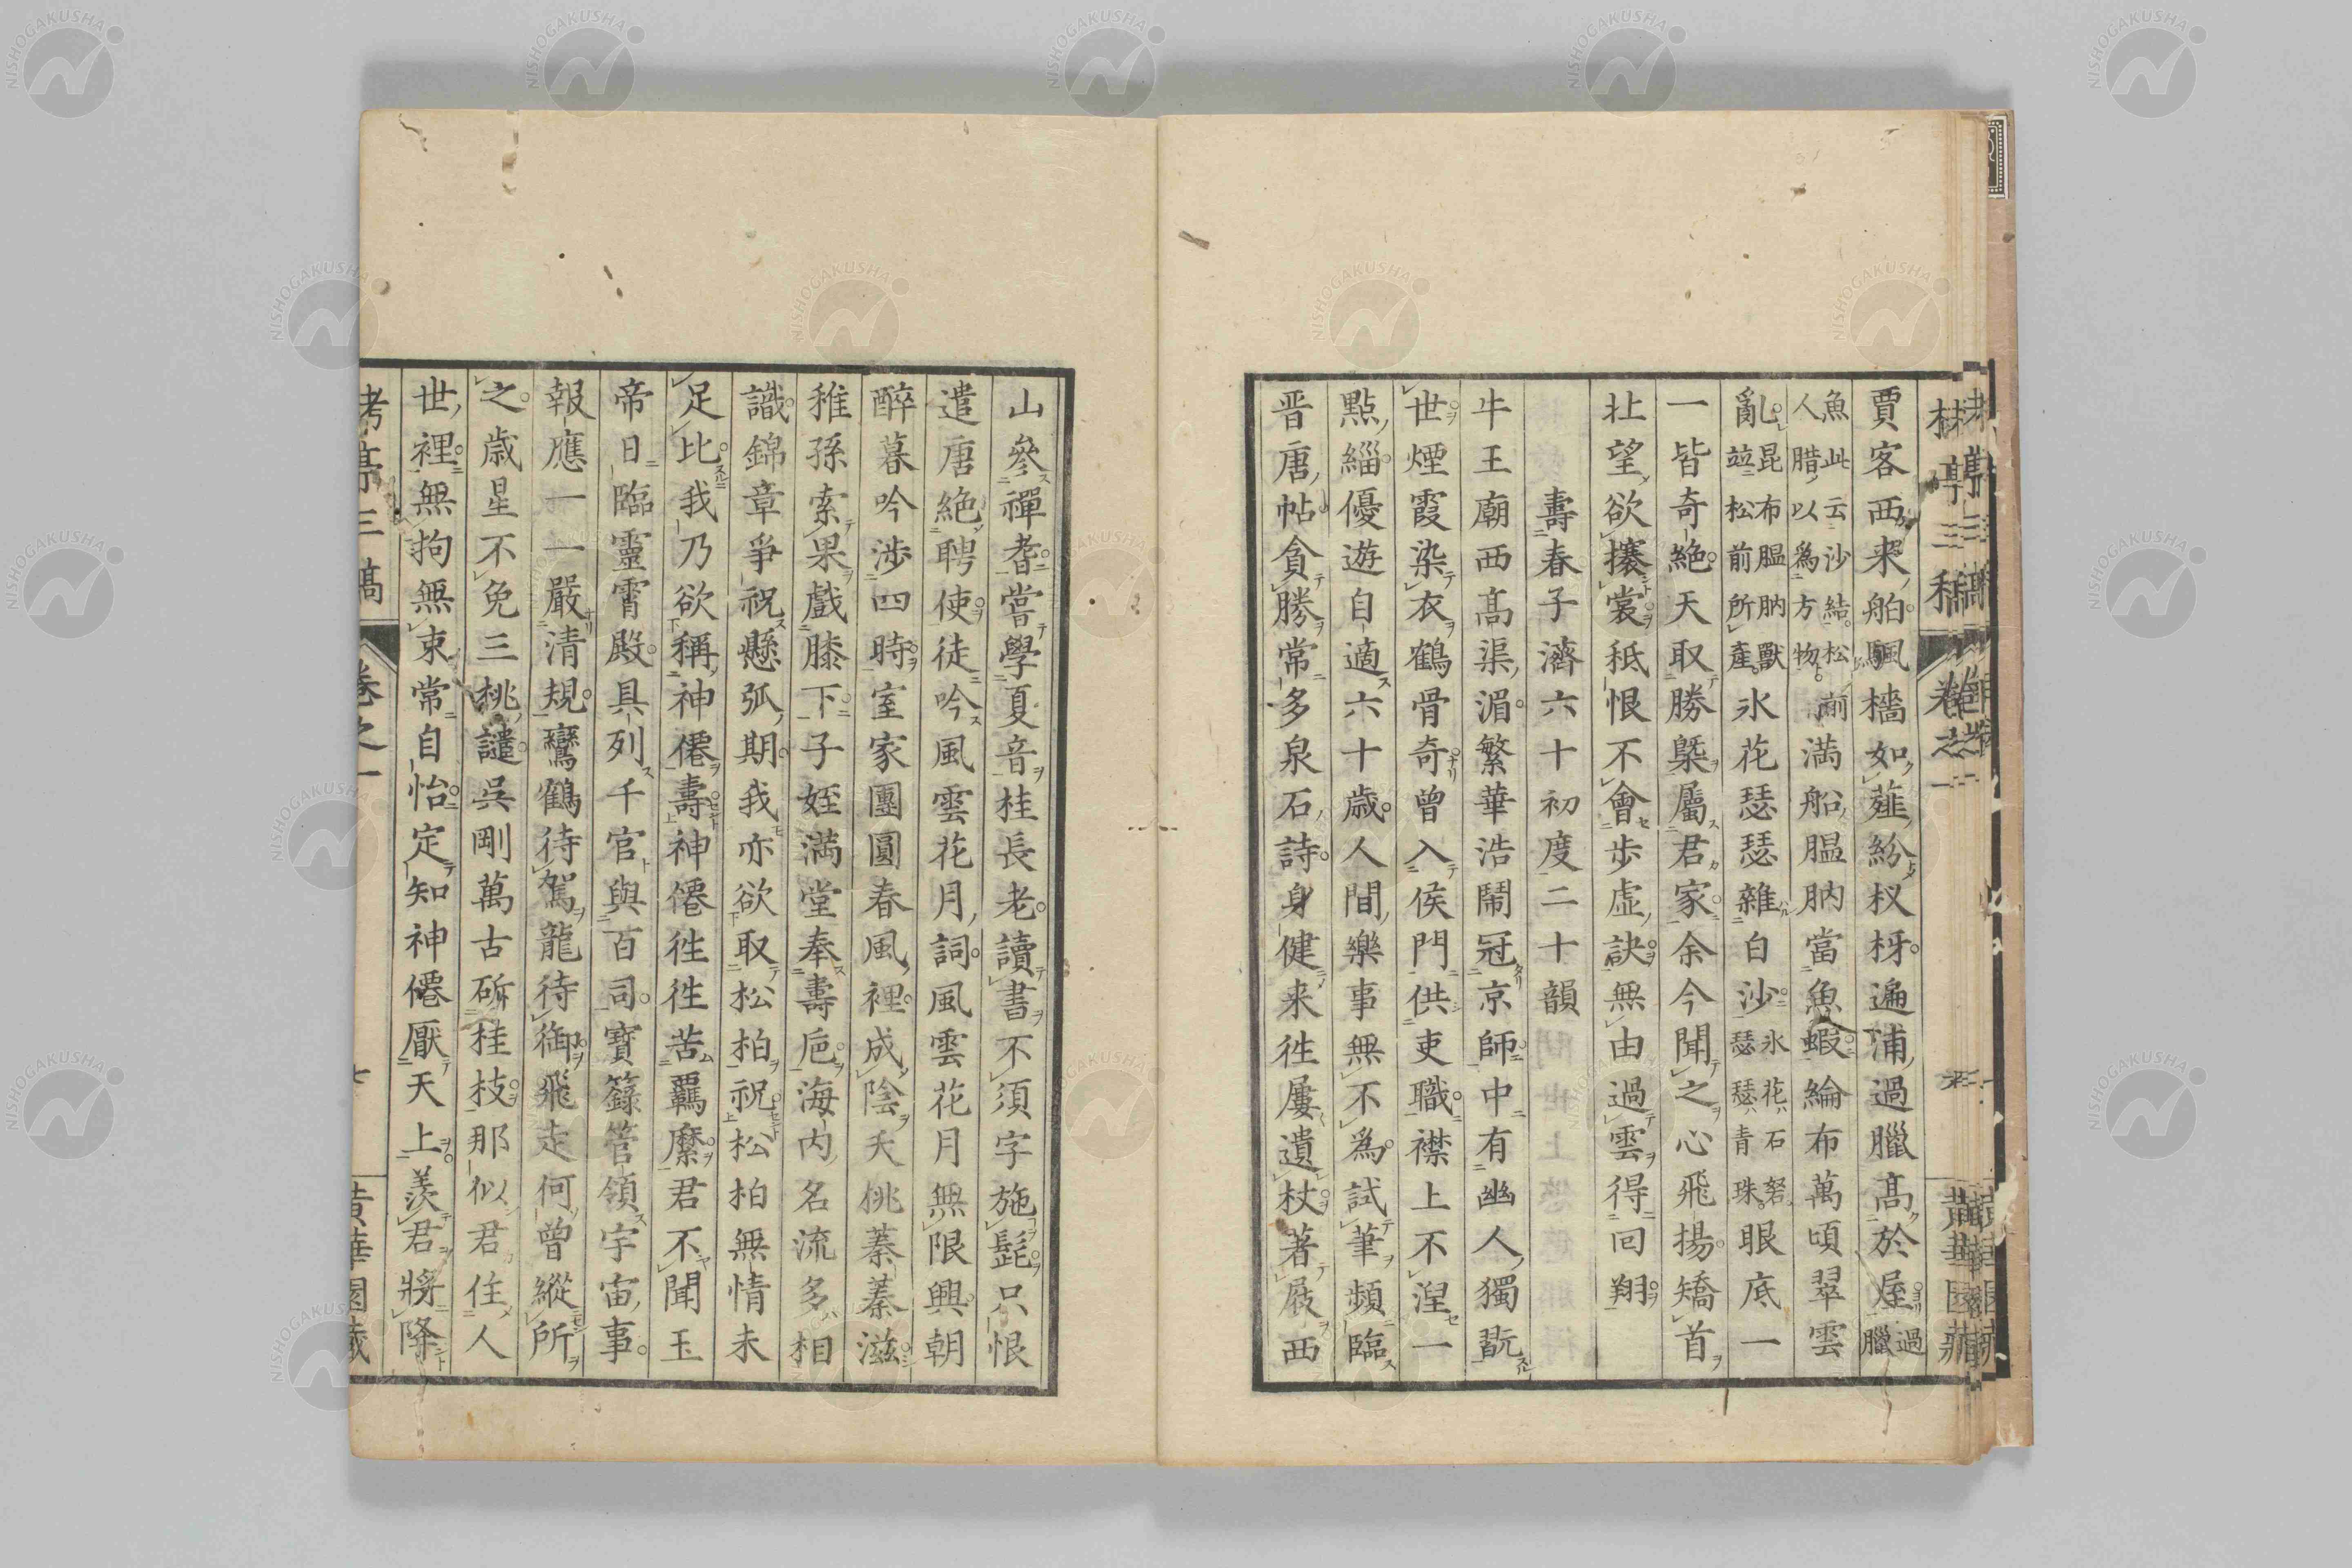 賈客西来舶颿檣如薤紛杈枒遍浦過臘髙於屋過臘
魚此云沙結松前人腊以爲方物満船膃肭當魚蝦綸布萬頃翠雲
亂昆布膃肭獸竝松前所產氷花瑟瑟雜白沙氷花石砮瑟瑟青珠眼底一
一皆奇絶天取勝槩屬君家余今聞之心飛揚矯首
北望欲攘裳秪恨不會步虛訣無由過雲得回翔
壽春子濟六十初度二十韻
牛王廟西髙渠湄繁華浩鬧冠京師中有幽人獨翫
世煙霞染衣鶴骨奇曾入侯門供吏職襟上不涅一
點緇優遊自適六十歳人間樂事無不爲試筆頻臨
晋唐帖貪勝常多泉石詩身健来徃屢遺杖著屐西
山參禪耆嘗學夏音桂長老讀書不須字施髭只恨
遣唐絶聘使徒吟風雲花月詞風雲花月無限興朝
醉暮吟渉四時室家團圓春風裡成陰夭桃蓁蓁滋
稚孫索果戲膝下子姪満堂奉壽巵海内名流多相
識錦章爭祝懸弧期我亦欲取松柏祝松柏無情未
足比我乃欲稱神僊壽神僊徃徃苦羈縻君不聞玉
帝日臨靈霄殿具列千官與百司寶籙管領宇宙事
報應一一嚴清規鸞鶴待駕龍待御飛走何曾縱所
之歳星不免三桃譴呉剛萬古斫桂枝那似君住人
世裡無拘無束常自怡定知神僊厭天上羨君將降
考亭三稿 卷之一 七 黄華園藏